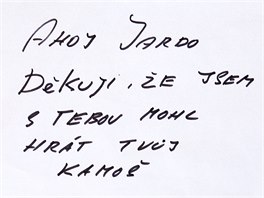 AHOJ JARDO
DĚKUJI, ŽE JSEM
S TEBOU MOHL
HRÁT TVŮJ
KAMOŠ